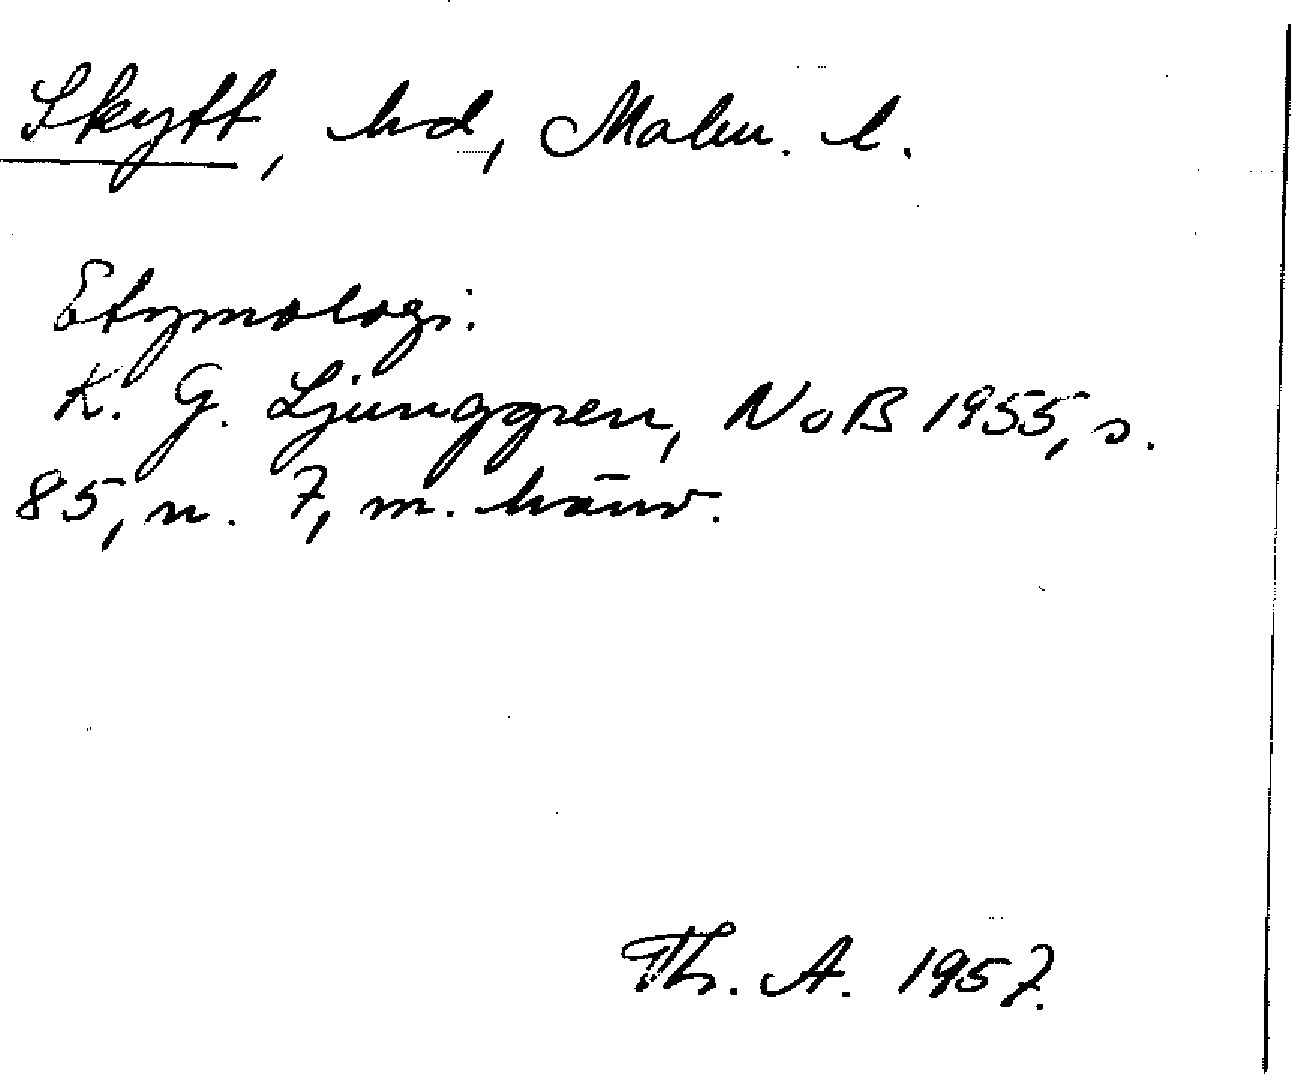 Skytt, hd, Malm. l.
Etymologi:
K. G. Ljunggren, NoB 1955, s.
85, n. 7, m. hänv.
Th. A. 1957.